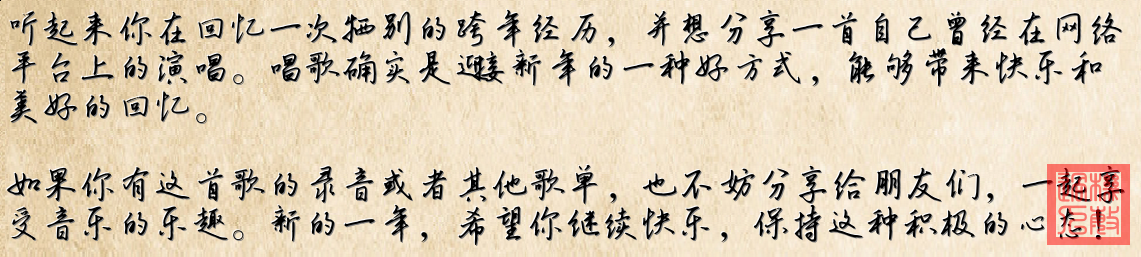 听起来你在回忆一次特别的跨年经历，并想分享一首自己曾经在网络
平台上的演唱。唱歌确实是迎接新年的一种好方式，能够带来快乐和
美好的回忆。
如果你有这首歌的录音或者其他歌单，也不妨分享给朋友们，一起享
受音乐的乐趣。新的一年，希望你继续快乐，保持这种积极的心态！